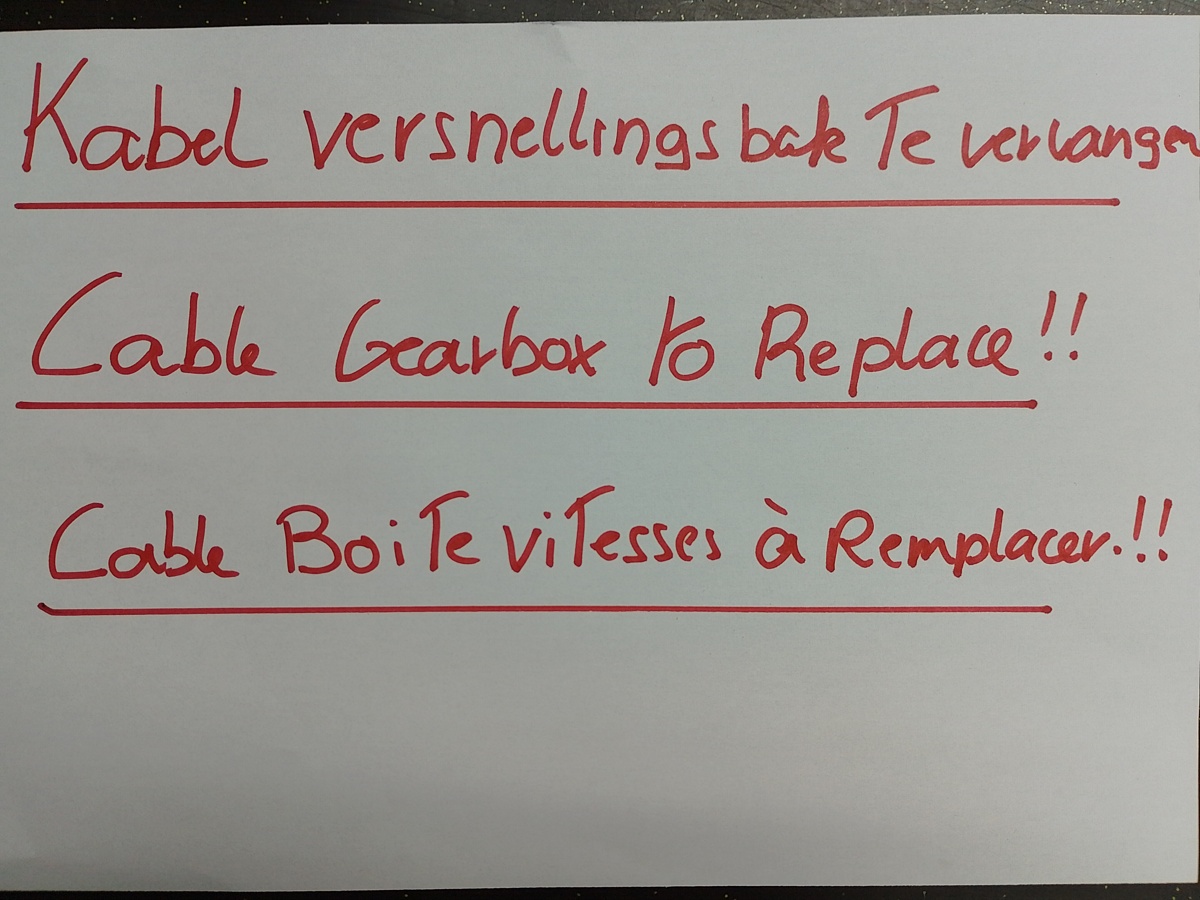 Kabel versnellings bak Te verlangen
Cable Gearbox to Replace!!
Cable BoiTe viTesses à Remplacer.!!